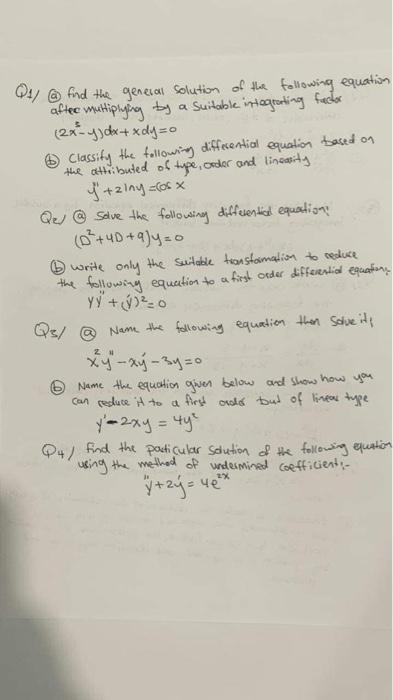 Q1/ (a) find the general solution of the following equation
after multiplying by a suitable integrating factor
(2x²-y)dx+xdy=0
(b) Classify the following differential equation based on
the attributed of type, order and linearity
y''+2lny=cos x
Q2/ (a) Solve the following differential equation:
(D²+4D+9)y=0
(b) write only the suitable transformation to reduce
the following equation to a first order differential equation:-
yy''+(y')²=0
Q3/ (a) Name the following equation then solve it;
x²y''-xy'-3y=0
(b) Name the equation given below and show how you
can reduce it to a first order but of linear type
y'-2xy=4y²
Q4/ Find the particular solution of the following equation
using the method of undesmined coefficient:-
y''+2y'=4e²ˣ